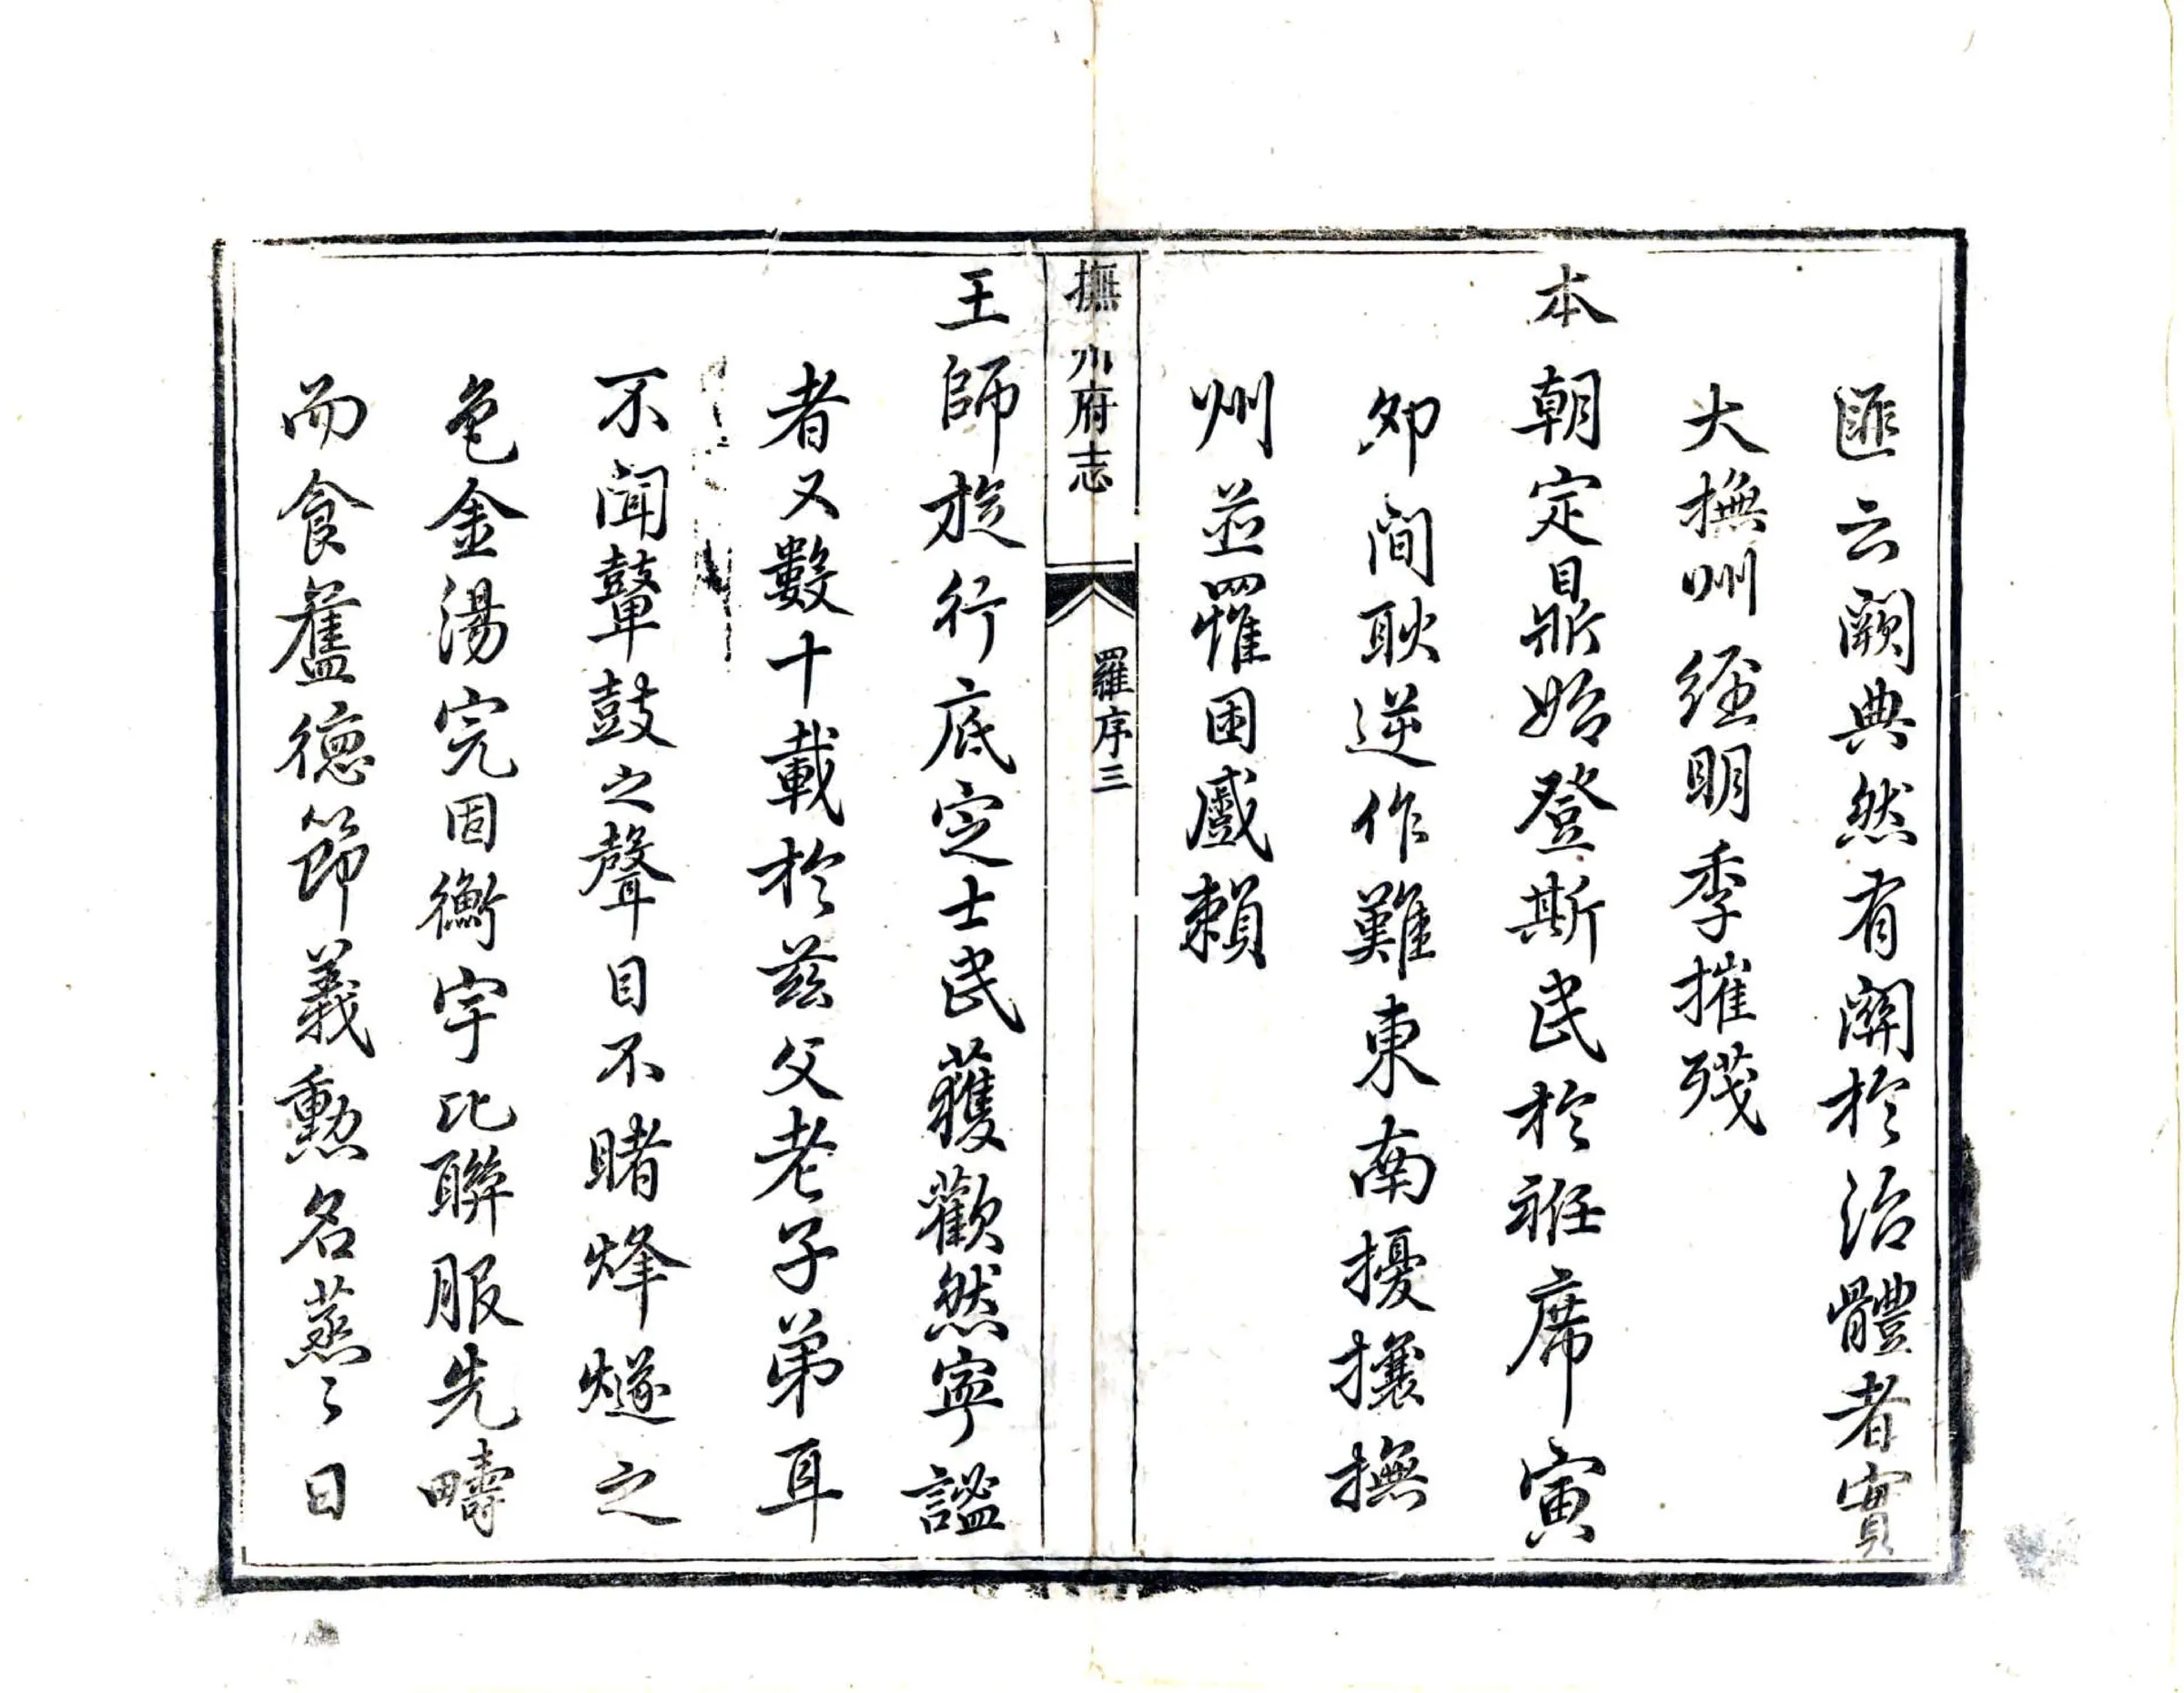 匪云闕典然有關於治體者實
大撫州經明季摧殘
本朝定鼎始登斯民於袵席寅
卯間耿逆作難東南擾攘撫
州並罹困蹙賴
撫州府志
羅序三
王師旋行底定士民獲歡然寧謐
者又數十載於茲父老子弟耳
不聞鼙鼓之聲目不睹烽燧之
色金湯完固衡宇比聯服先疇
而食舊德節義勲名蒸〻日